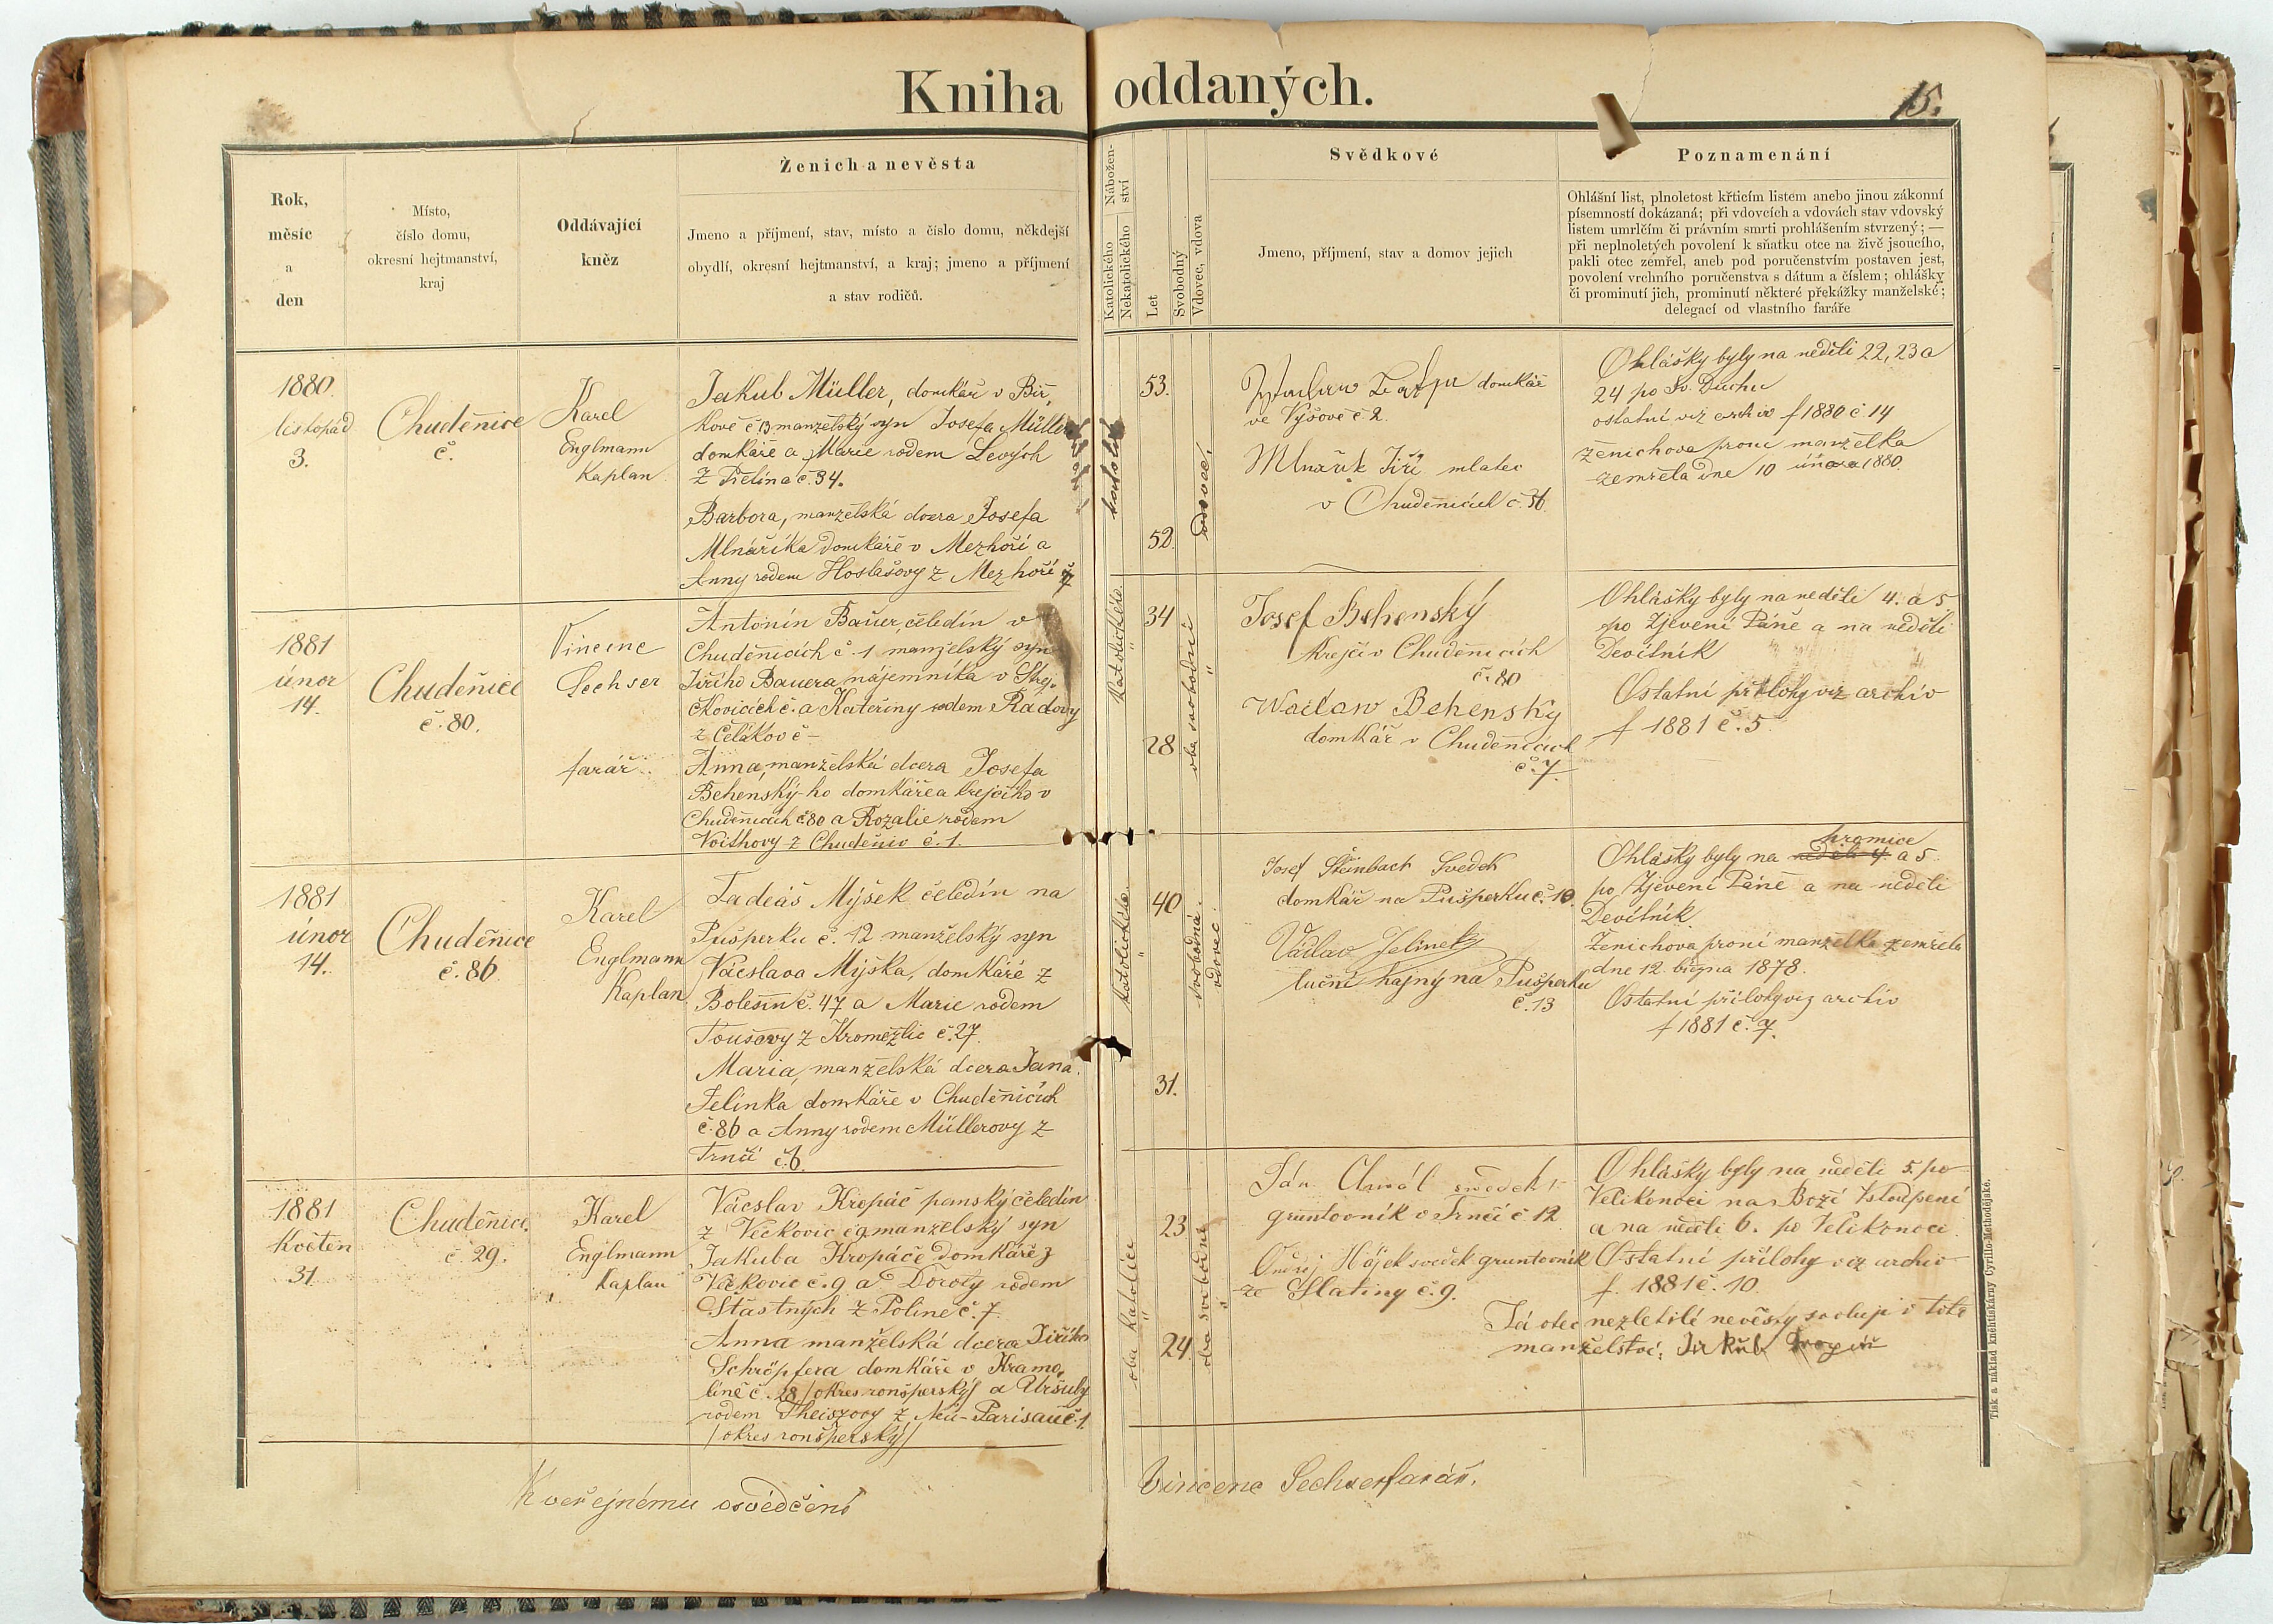 Kniha oddaných.
15.
Rok,
měsíc
a
den
Místo,
číslo domu,
okresní hejtmanství,
kraj
Oddávající
kněz
Ženich a nevěsta
Jmeno a příjmení, stav, místo a číslo domu, někdejší
obydlí, okresní hejtmanství, a kraj; jmeno a příjmení
a stav rodičů.
Nábožen-
ství
Katolického
Nekatolického
Let
Svobodný
Vdovec, vdova
Svědkové
Jmeno, příjmení, stav a domov jejich
Poznamenání
Ohlášní list, plnoletost křticím listem anebo jinou zákonní
písemností dokázaná; při vdovcích a vdovách stav vdovský
listem umrlčím či právním smrti prohlášením stvrzený; —
při neplnoletých povolení k sňatku otce na živě jsoucího,
pakli otec zemřel, aneb pod poručenstvím postaven jest,
povolení vrchního poručenstva s dátum a číslem; ohlášky
či prominutí jich, prominutí některé překážky manželské;
delegací od vlastního faráře
1880.
listopád
3.
Chudenice
č.
Karel
Englmann
Kaplan
Jakub Müller, domkář v Bir-
kově č 13 manželský syn Josefa Müllera
domkáře a Marie rodem Levých
z č. 34.
Barbora, manželská dcera Josefa
Mlnáříka domkáře v Mezhoří a
Anny rodem z Mezhoří č 7
53.
52.
vdovec.
domkář
ve Výšově č 2.
Mlnařík Jiří mlatec
v Chudenicích č. 36.
Ohlášky byly na neděli 22, 23 a
24 po Sv. Duchu
ostatní viz archiv f 1880 č 14
ženichova první manželka
zemřela dne 10 února 1880.
1881
únor
14.
Chudenice
č. 80.
Vincenc
Sechser
farář.
Antonín Bauer, čeledín v
Chudenicích č. 1 manželský syn
Jiřího Bauera nájemníka v Stre-
č. a Kateřiny rodem Radovy
z Čelákov č –
Anna, manželská dcera Josefa
Behenský-ho domkáře a krejčího v
Chudenicích č 80 a Rozalie rodem
Voithovy z Chudenic č. 1.
Katolického.
"
34
28
oba svobodní
"
Josef Behenský
Krejčí v Chudenicích
č. 80
Waclaw Behenský
domkář v Chudenicích
č. 7.
Ohlášky byly na neděli 4. a 5
po Zjevení Páně a na neděli
Devítník
Ostatní přílohy viz archiv
f 1881 č. 5
1881
únor
14.
Chudenice
č. 86
Karel
Englmann
Kaplan
Tadeáš Myšek čeledín na
Pušperku č. 12 manželský syn
Vácslava Myška, domkáře z
Bolešin č. 47 a Marie rodem
Toušovy z Kroměžlic č. 27.
Maria, manželská dcera Jana
Jelínka domkáře v Chudenicích
č. 86 a Anny rodem Müllerovy z
Trnčí č. 6.
Katolického.
"
40
31.
svobodná.
vdovec.
Josef Steinbach Svedek
domkář na Pušperku č. 10.
Václav Jelinek
luční hajný na Pušperku
č. 13
hromice
Ohlášky byly na neděli 4 a 5
po Zjevení Páně a na neděli
Devítník
Ženichova první manželka zemřela
dne 12. března 1878.
Ostatní přílohy viz archiv
f 1881 č. 7.
1881
Květen
31
Chudenice
č 29.
Karel
Englmann
Kaplan
Vácslav Kropáč panský čeledín
z Věčkovic č 9 manželský syn
Jakuba Kropáče domkáře z
Věčkovic č. 9 a Doroty rodem
Šťastných z Polině č. 7
Anna manželská dcera Jiřího
Schröpfera domkáře v Kramo-
líně č. 28 /okres ronšperský/ a Uršuly
rodem Theiszovy z Neu-Parisau č. 1
/okres ronšperský/
oba katolíci
"
23
24
oba svobodni
"
Ján Chwál svědek
gruntovník v Trnčí č 12
Ondřej Hájek svedek gruntovník
ze Slatiny č. 9.
Ohlášky byly na neděli 5. po
Velikonoci na Boží Vstoupení
a na neděli 6. po Velikonoci.
Ostatní přílohy viz archiv
f. 1881 č. 10.
Já otec nezletilé nevěsty svoluji v toto
manželství:
K veřejnému osvědčení
Vincenc Sechser farář.
Tisk a náklad knihtiskárny Cyrillo-Methodějské.